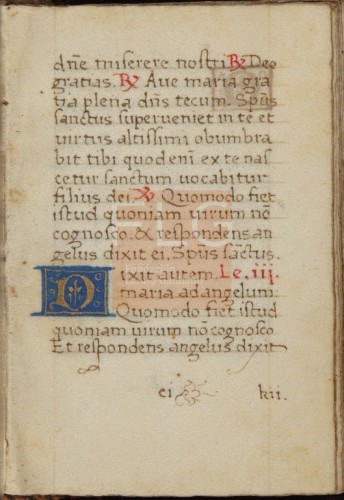 dñe miserere nostri ℞ Deo
gratias. ℞ Aue maria gra
tia plena dñs tecum. Spũs
sanctus superueniet in te et
uirtus altissimi obumbra
bit tibi quod eni ex te nas
cetur sanctum uocabitur
filius dei. ℣ Quomodo fiet
istud quoniam uirum nõ
cognosco. & respondens an
gelus dixit ei. Spũs sãctus.
Dixit autem. Le. iij.
maria ad angelum:
Quomodo fiet istud
quoniam uirum nõ cognosco
Et respondens angelus dixit
ei kii.